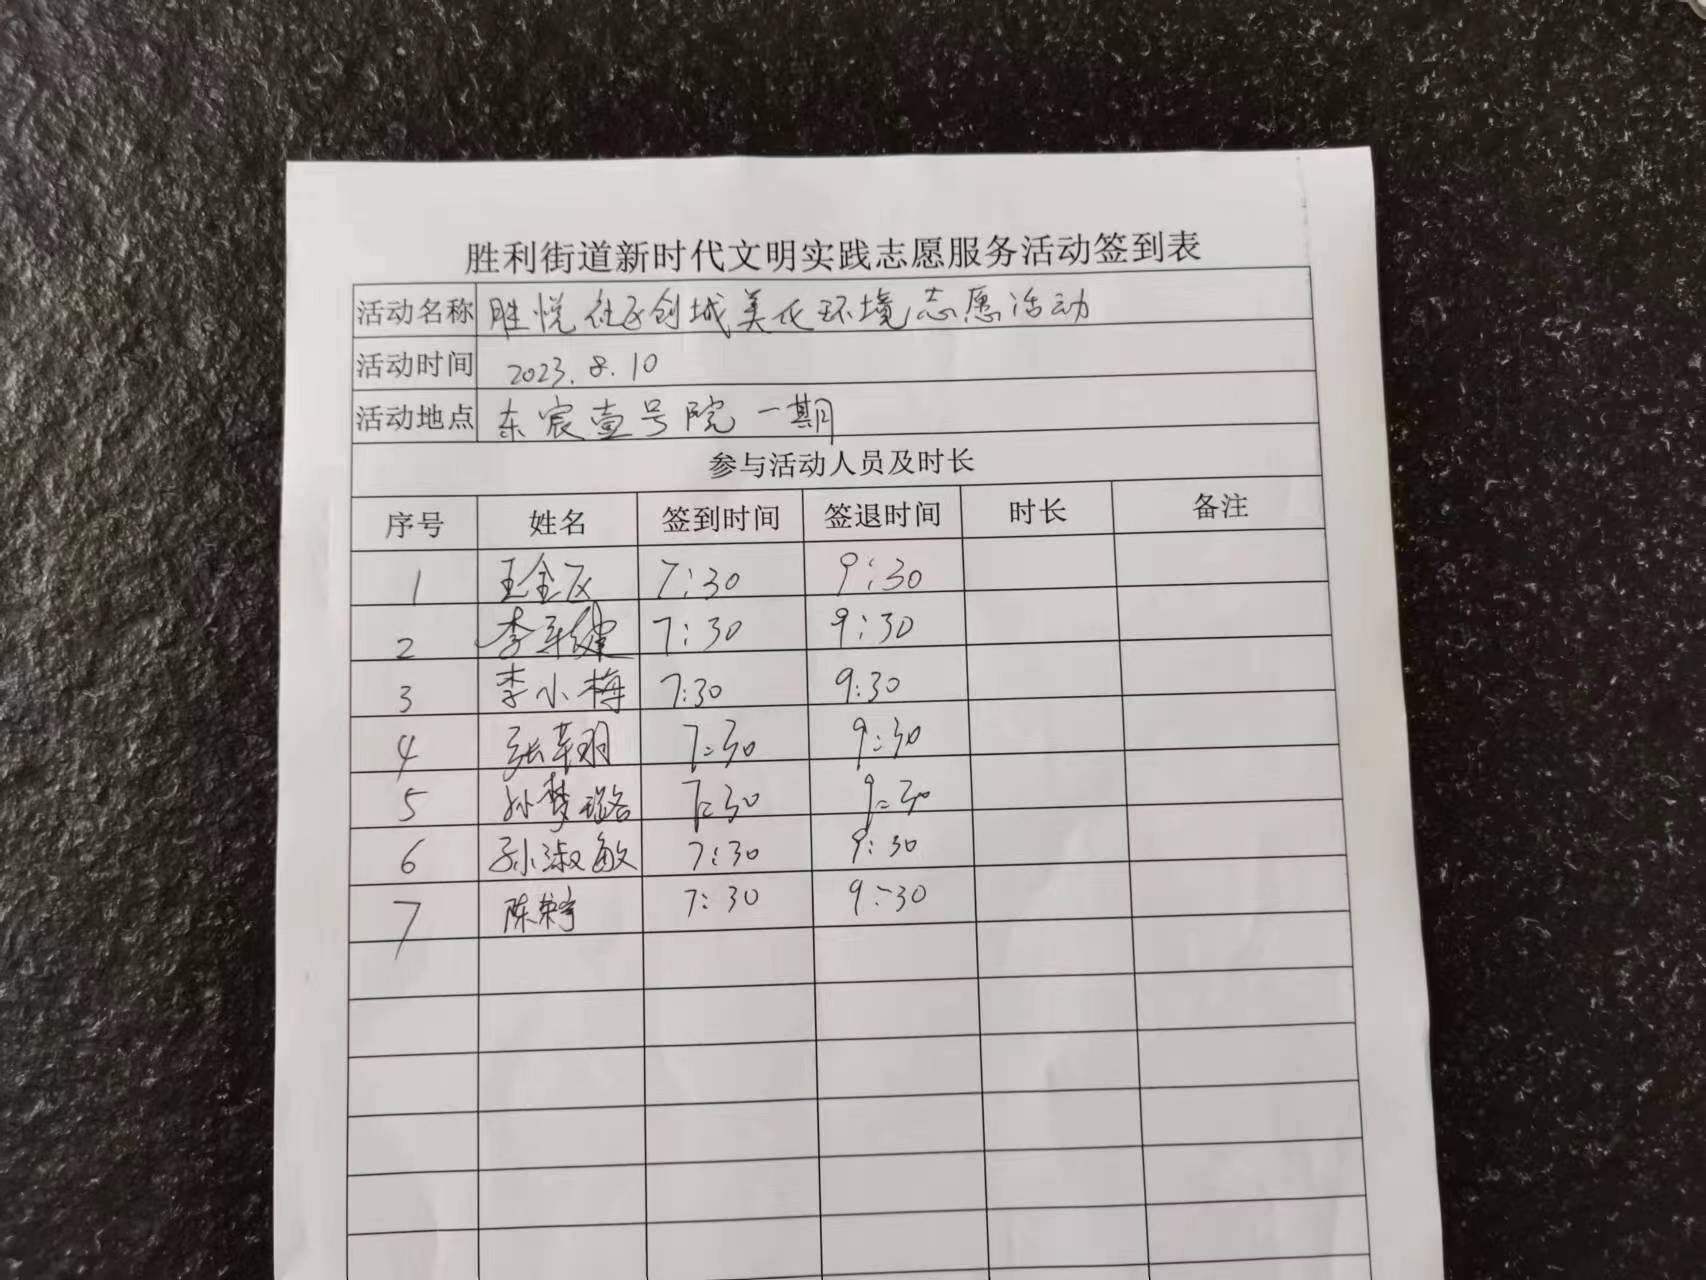 胜利街道新时代文明实践志愿服务活动签到表
活动名称 胜悦社区创城美化环境志愿活动
活动时间 2023.8.10
活动地点 东宸壹号院一期
参与活动人员及时长
序号 姓名 签到时间 签退时间 时长 备注
1 7:30 9:30
2 7:30 9:30
3 李小梅 7:30 9:30
4 7:30 9:30
5 孙梦璐 7:30 9:30
6 孙淑敏 7:30 9:30
7 7:30 9:30